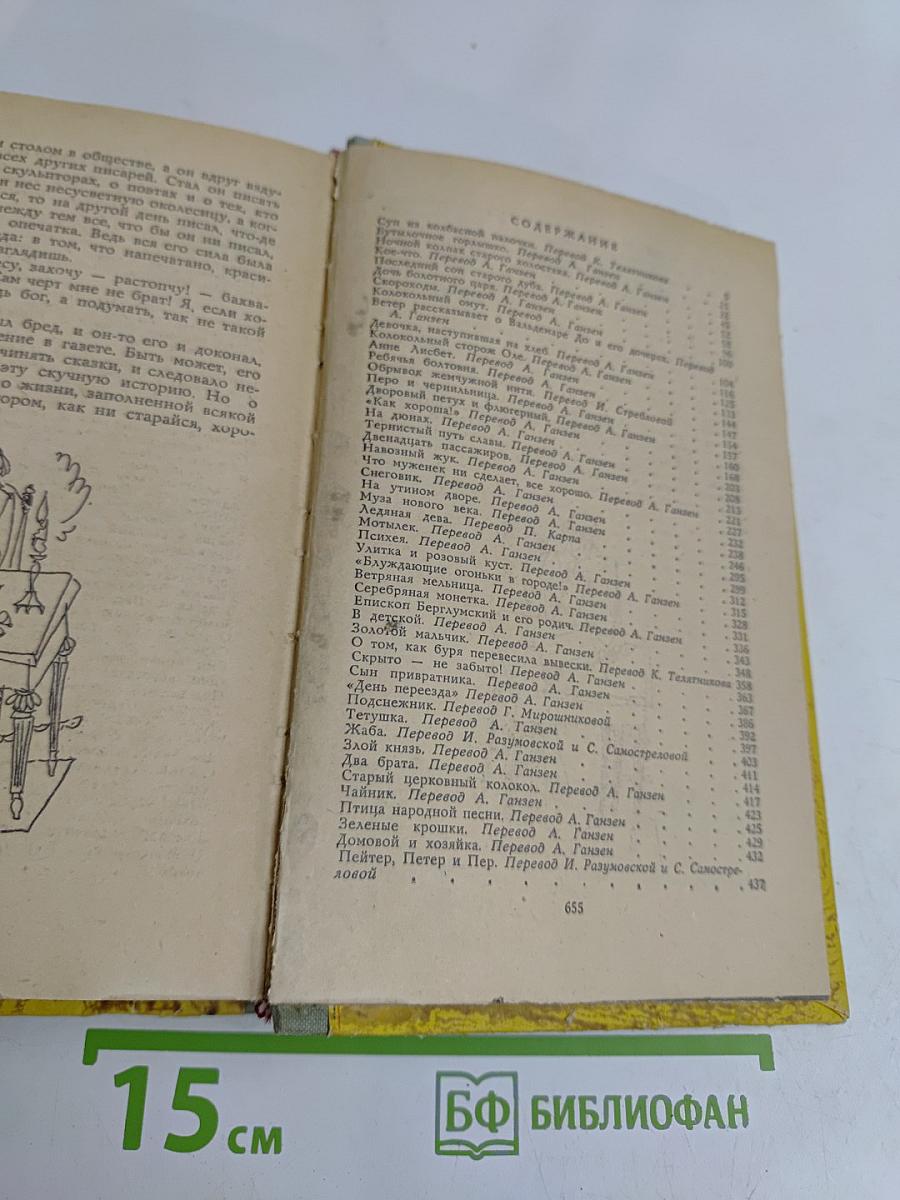 и столом в обществе, а он вдруг взду-
всех других писарей. Стал он писать
скульпторах, о поэтах и о тех, кто
н нес несусветную околесицу, а ког-
ся, то на другой день писал, что-де
между тем все, что бы он ни писал,
опечатка. Ведь вся его сила была
да: в том, что напечатано, краси-
зглядишь.
су, захочу — растопчу! — бахва-
Сам черт мне не брат! Я, если хо-
дь бог, а подумать, так не такой
л бред, и он-то его и доконал,
ение в газете. Быть может, его
чинять сказки, и следовало не-
эту скучную историю. Но о
о жизни, заполненной всякой
ором, как ни старайся, хоро-
СОДЕРЖАНИЕ
Суп из колбасной палочки. Перевод К. Телятникова
Бутылочное горлышко. Перевод А. Ганзен
Ночной колпак старого холостяка. Перевод А. Ганзен
Кое-что. Перевод А. Ганзен
Последний сон старого дуба. Перевод А. Ганзен
Дочь болотного царя. Перевод А. Ганзен
Скороходы. Перевод А. Ганзен
Колокольный омут. Перевод А. Ганзен
Ветер рассказывает о Вальдемаре До и его дочерях. Перевод
А. Ганзен 104
Девочка, наступившая на хлеб. Перевод А. Ганзен
Колокольный сторож Оле. Перевод А. Ганзен
Анне Лисбет. Перевод А. Ганзен
Ребячья болтовня. Перевод А. Ганзен
Обрывок жемчужной нити. Перевод И. Стребловой
Перо и чернильница. Перевод А. Ганзен
Дворовый петух и флюгерный. Перевод А. Ганзен
«Как хороша!» Перевод А. Ганзен
На дюнах. Перевод А. Ганзен
Тернистый путь славы. Перевод А. Ганзен
Двенадцать пассажиров. Перевод А. Ганзен
Навозный жук. Перевод А. Ганзен
Что муженек ни сделает, все хорошо. Перевод А. Ганзен
Снеговик. Перевод А. Ганзен
На утином дворе. Перевод А. Ганзен
Муза нового века. Перевод А. Ганзен
Ледяная дева. Перевод П. Карпа 246
Мотылек. Перевод А. Ганзен 295
Психея. Перевод А. Ганзен 299
Улитка и розовый куст. Перевод А. Ганзен 312
«Блуждающие огоньки в городе!» Перевод А. Ганзен 315
Ветряная мельница. Перевод А. Ганзен 328
Серебряная монетка. Перевод А. Ганзен 331
Епископ Берглумский и его родич. Перевод А. Ганзен 336
В детской. Перевод А. Ганзен 343
Золотой мальчик. Перевод А. Ганзен 348
О том, как буря перевесила вывески. Перевод К. Телятникова 358
Скрыто — не забыто! Перевод А. Ганзен 363
Сын привратника. Перевод А. Ганзен 367
«День переезда» Перевод А. Ганзен 386
Подснежник. Перевод Г. Мирошниковой 392
Тетушка. Перевод А. Ганзен 397
Жаба. Перевод И. Разумовской и С. Самостреловой 403
Злой князь. Перевод А. Ганзен 411
Два брата. Перевод А. Ганзен 414
Старый церковный колокол. Перевод А. Ганзен 417
Чайник. Перевод А. Ганзен 423
Птица народной песни. Перевод А. Ганзен 425
Зеленые крошки. Перевод А. Ганзен 429
Домовой и хозяйка. Перевод А. Ганзен 432
Пейтер, Петер и Пер. Перевод И. Разумовской и С. Самостре-
ловой 437
655
15 см
БФ БИБЛИОФАН